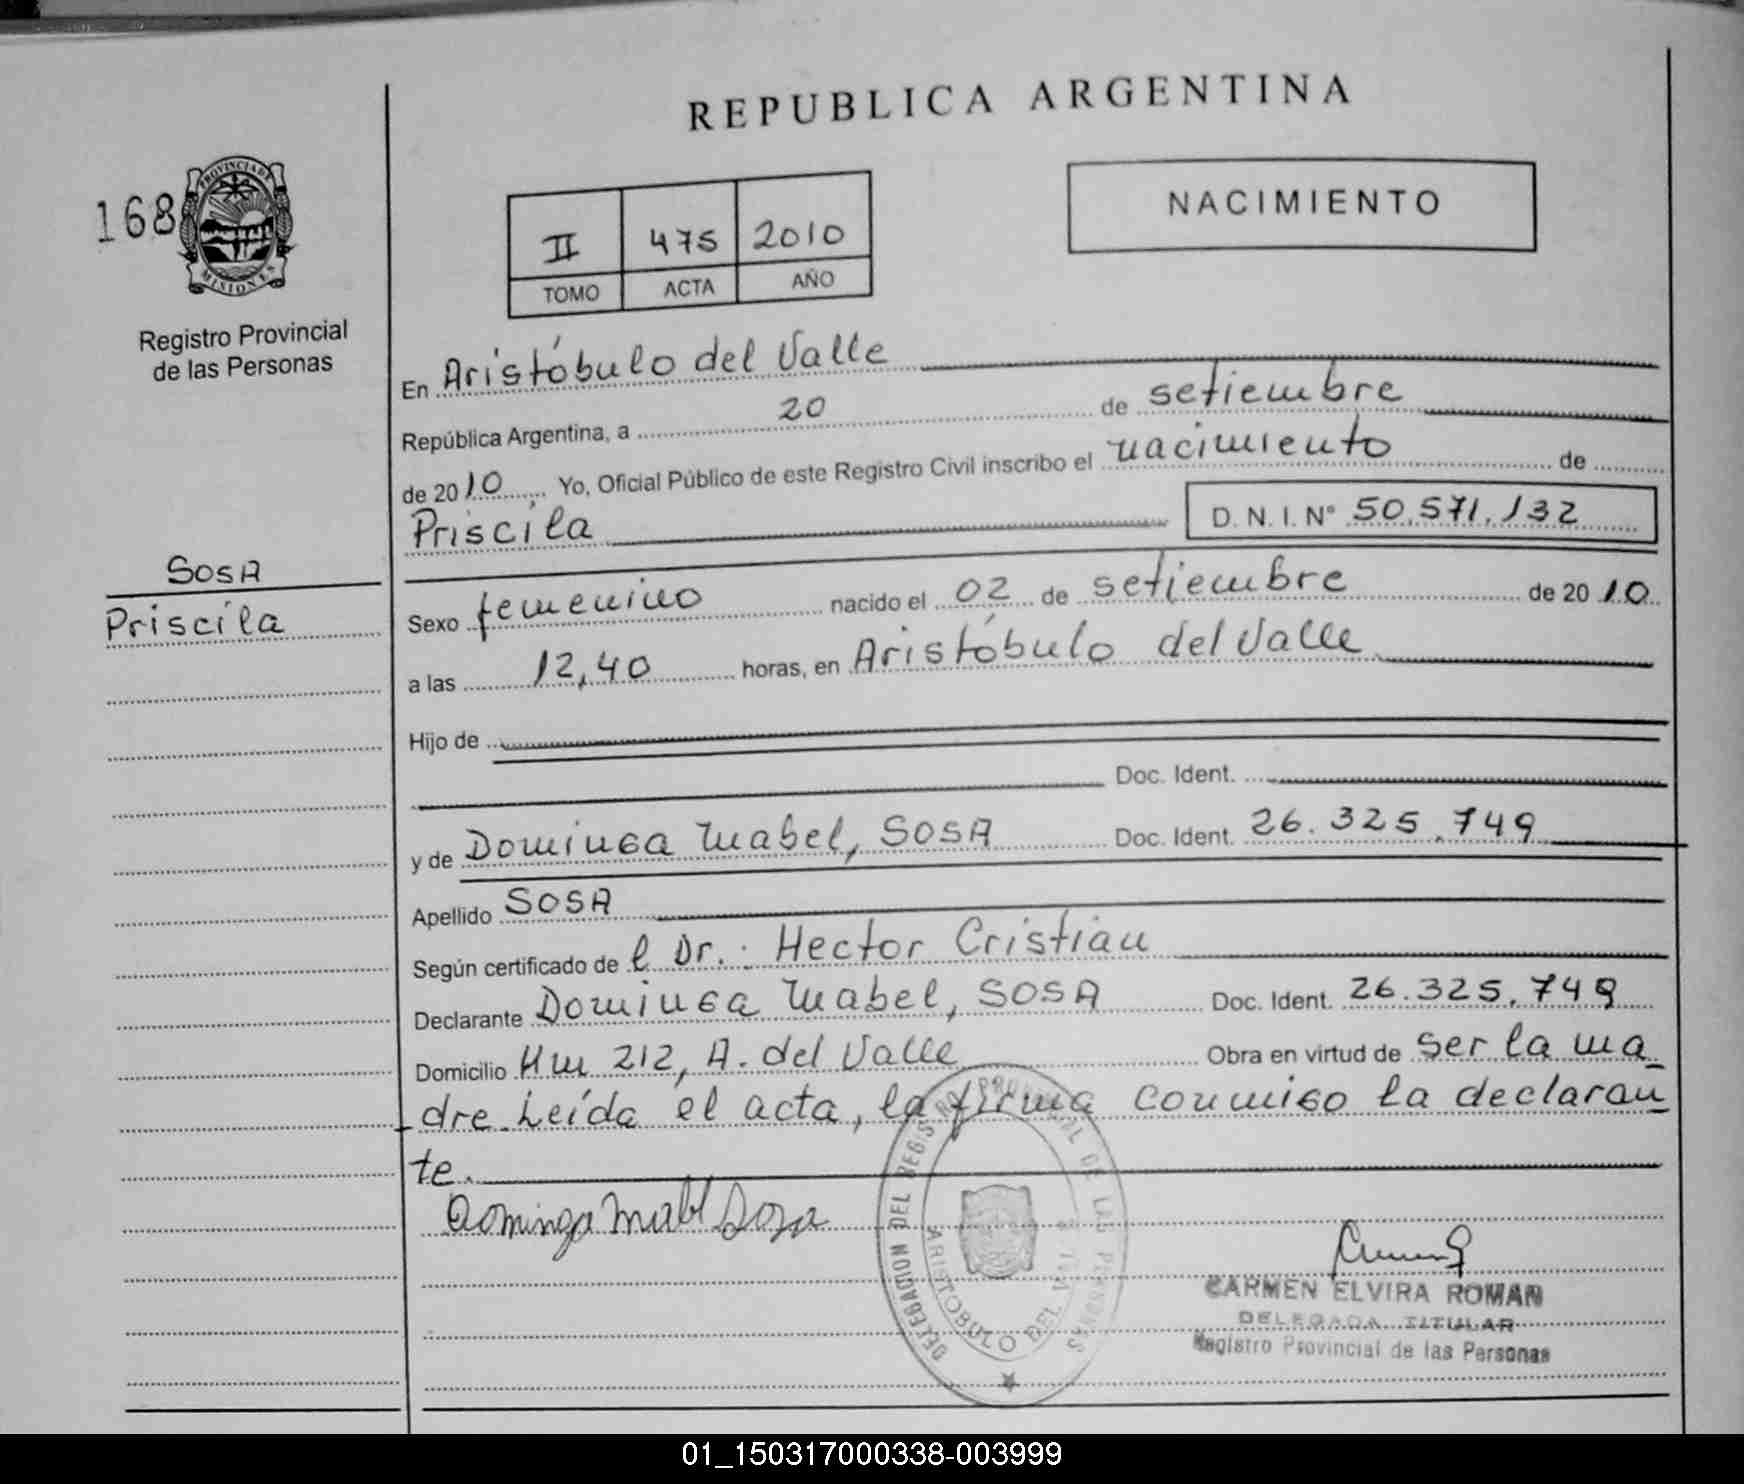 REPUBLICA ARGENTINA
168
PROVINCIA DE
MISIONES
Registro Provincial
de las Personas
II 475 2010
TOMO ACTA AÑO
NACIMIENTO
En Aristóbulo del Valle
República Argentina, a 20 de setiembre
de 2010. Yo, Oficial Público de este Registro Civil inscribo el nacimiento de
Priscila D. N. I. N° 50.571.132
SOSA
Priscila
Sexo femenino nacido el 02 de setiembre de 2010
a las 12,40 horas, en Aristóbulo del Valle
Hijo de
Doc. Ident.
y de Dominga Mabel, SOSA Doc. Ident. 26.325.749
Apellido SOSA
Según certificado de l Dr.: Hector Cristian
Declarante Dominga Mabel, SOSA Doc. Ident. 26.325.749
Domicilio Km 212, A. del Valle Obra en virtud de ser la ma
dre. Leída el acta, la firma conmigo la declaran
te.
Dominga Mabl Sosa
DELEGACION DEL REGISTRO PROVINCIAL DE LAS PERSONAS
ARISTOBULO DEL VALLE
CARMEN ELVIRA ROMAN
DELEGADA TITULAR
Registro Provincial de las Personas
01_150317000338-003999